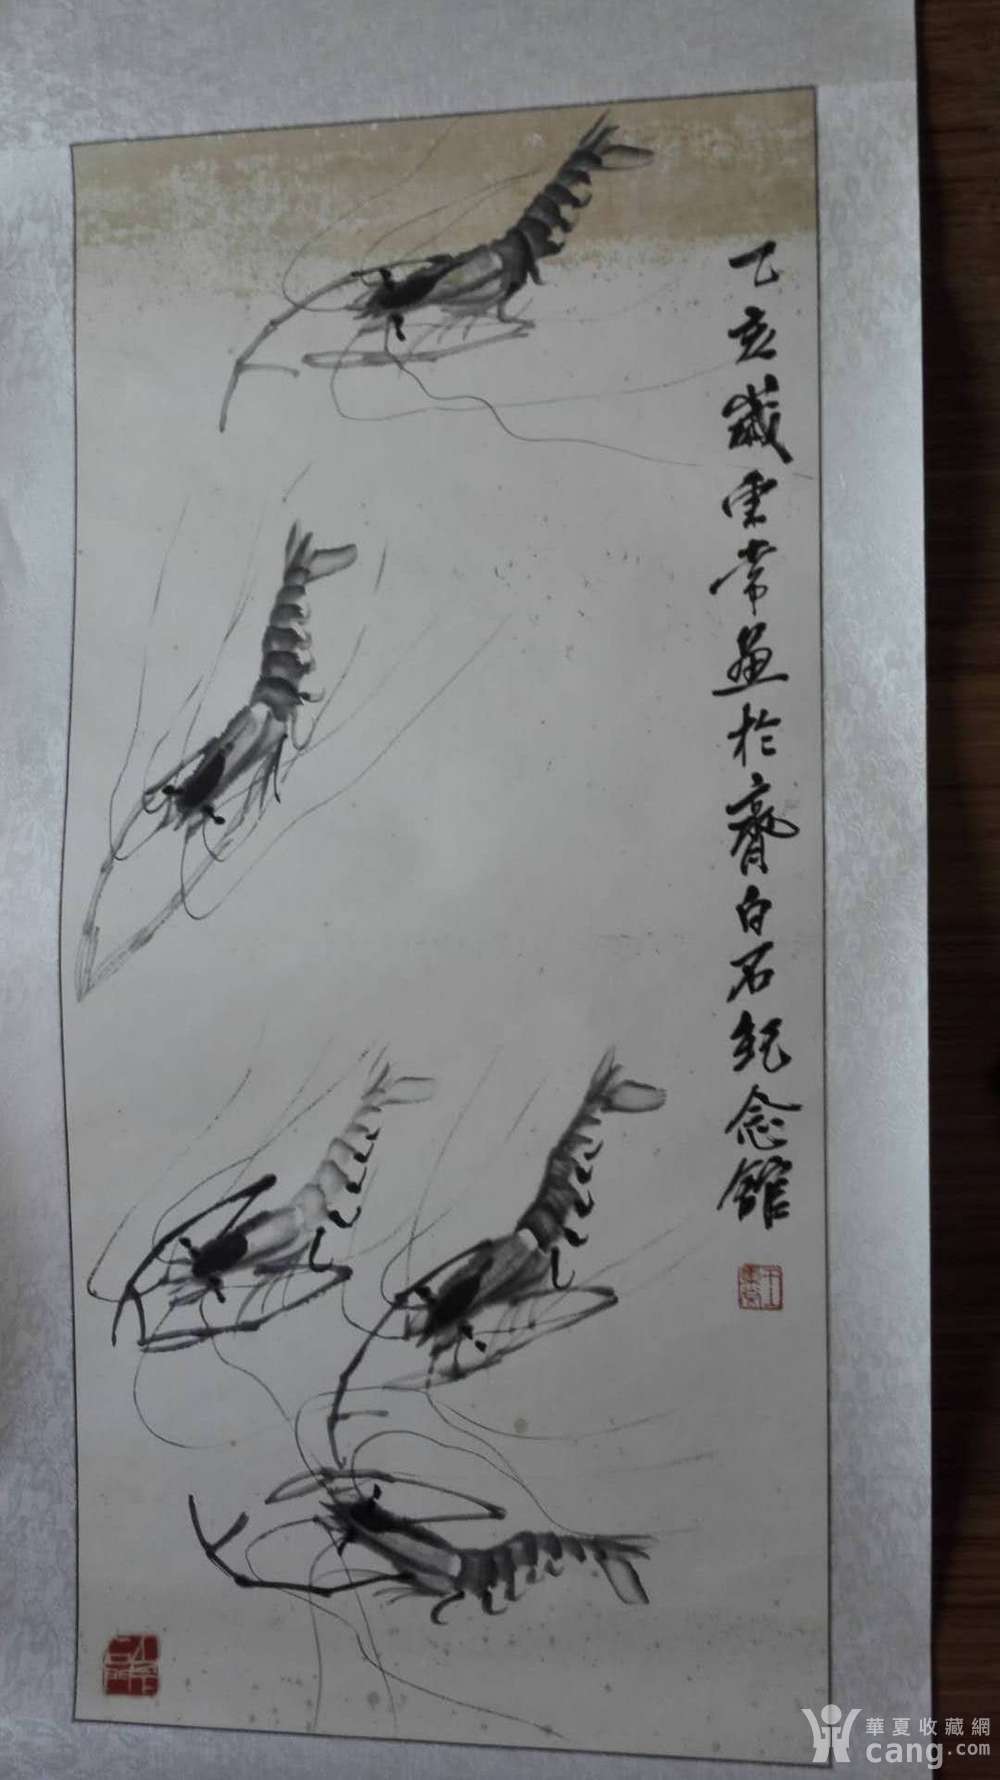 乙亥歲雲常画於齊白石纪念館
華夏收藏網
cang.com